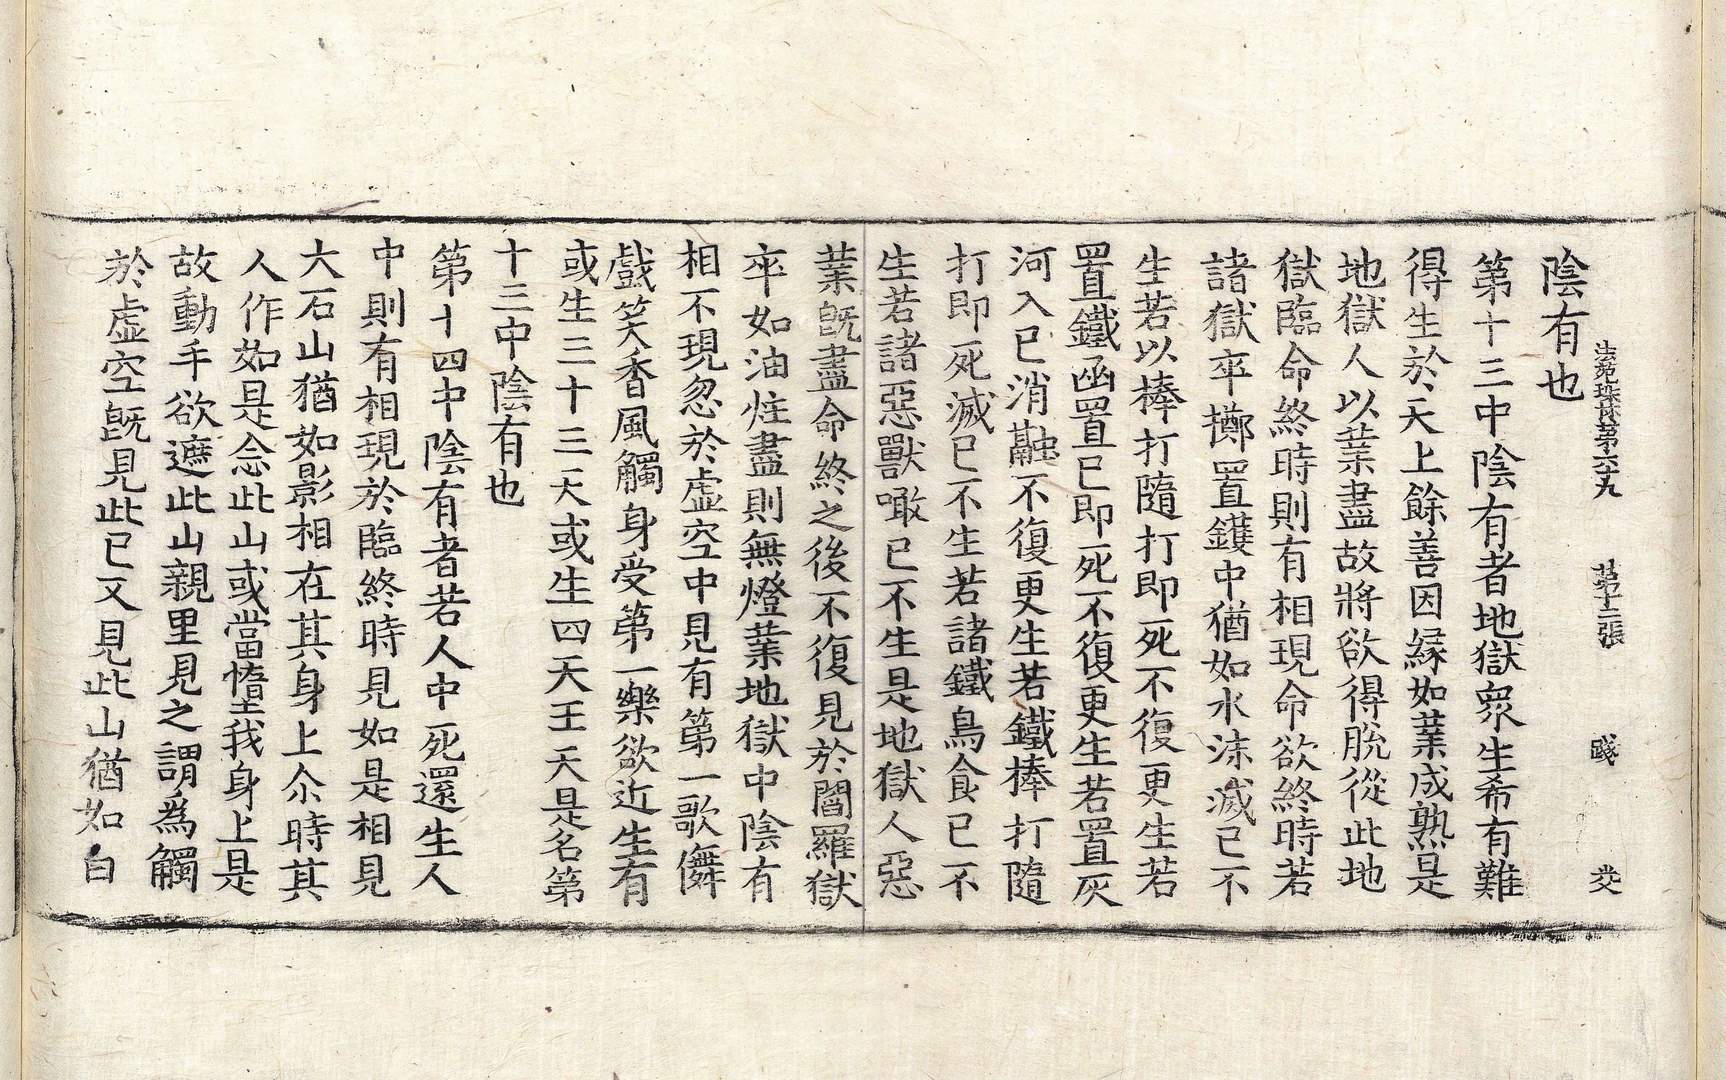 法苑珠林第六十九 第十二張
陰有也
第十三中陰有者地獄衆生希有難
得生於天上餘善因緣如業成熟是
地獄人以業盡故將欲得脫從此地
獄臨命終時則有相現命欲終時若
諸獄卒擲置鑊中猶如水沫滅已不
生若以棒打隨打即死不復更生若
置鐵函置已即死不復更生若置灰
河入已消融不復更生若鐵棒打隨
打即死滅已不生若諸鐵鳥食已不
生若諸惡獸噉已不生是地獄人惡
業既盡命終之後不復見於閻羅獄
卒如油炷盡則無燈業地獄中陰有
相不現忽於虛空中見有第一歌儛
戲笑香風觸身受第一樂欲近生有
或生三十三天或生四天王天是名第
十三中陰有也
第十四中陰有者若人中死還生人
中則有相現於臨終時見如是相見
大石山猶如影相在其身上尒時其
人作如是念此山或當墮我身上是
故動手欲遮此山親里見之謂為觸
於虛空旣見此已又見此山猶如白